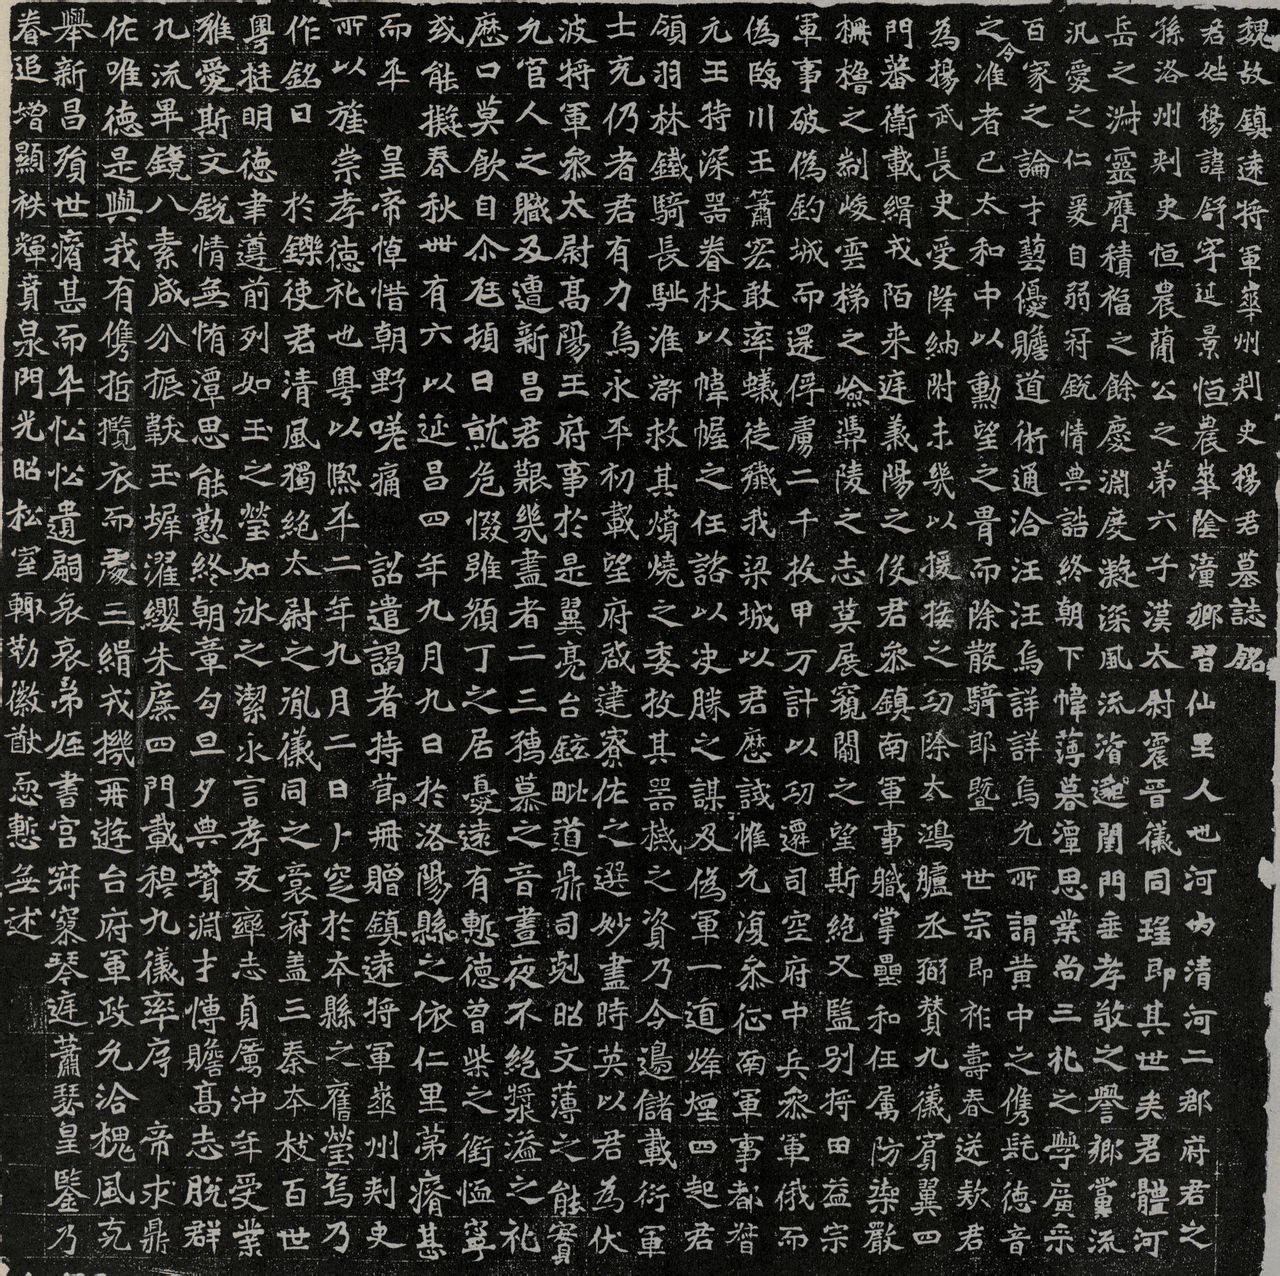 魏故鎮遠將軍華州刺史楊君墓誌銘
君姓楊諱舒字延景恒農華陰潼鄉習仙里人也河內清河二郡府君之
孫洛州刺史恒農簡公之第六子漢太尉震晉儀同瑤即其世矣君體河
岳之淋靈膺積福之餘慶淵度凝深風流淯邈閨門垂孝敬之譽鄉黨流
汎愛之仁爰自弱冠銳情典誥終朝下幃薄暮潭思業尚三礼之學廣采
百家之論才藝優贍道術通洽汪汪焉詳詳焉允所謂黃中之儁髦德音
之令准者已太和中以勳望之胄而除散騎郎暨 世宗即祚壽春送款君
為揚武長史受降納附未幾以援接之功除太鴻臚丞弼贊九儀賓翼四
門蕃衛載緝戎陌来庭義陽之役君參鎮南軍事職掌壘和任属防禦嚴
柵櫓之制峻雲梯之嶮馮陵之志莫展窺闚之望斯絕又監別將田益宗
軍事破偽釣城而還俘虜二千收甲万計以功遷司空府中兵參軍俄而
偽臨川王蕭宏敢率蟻徒殲我梁城以君歷試惟允復參征南軍事都督
元王特深器眷杖以幃幄之任諮以决勝之謀及偽軍一道烽煙四起君
領羽林鐵騎長駈淮澨救其燌燒之委收其器械之資乃令邊儲載衍軍
士充仍者君有力焉永平初載望府啟建寮佐之選妙盡時英以君為伏
波將軍參太尉高陽王府事於是翼亮台鉉毗道鼎司剋昭文薄之能實
允官人之職及遭新昌君艱幾盡者二三孺慕之音晝夜不絕漿溢之礼
歷口莫飲自尒尫頓日就危惙雖湏丁之居憂遠有慙德曾柴之銜恤寧
或能擬春秋卌有六以延昌四年九月九日於洛陽縣之依仁里第瘠甚
而卒 皇帝悼惜朝野嗟痛 詔遣謁者持節冊贈鎮遠將軍華州刺史
所以旌崇孝德礼也粵以熙平二年九月二日卜窆於本縣之舊塋焉乃
作銘曰 於鑠使君清風獨絕太尉之胤儀同之裔冠盖三秦本枝百世
粵挺明德聿遵前列如玉之瑩如冰之潔永言孝友率志貞厲沖年受業
雅愛斯文銳情無怠潭思能懃終朝章勾旦夕典墳淵才慱贍高志脫群
九流畢鏡八素咸分振韍玉墀濯纓朱廡四門載穆九儀率序 帝求鼎
佐唯德是與我有儁哲攬衣而處三緝戎機再遊台府軍政允洽槐風克
舉新昌殞世瘠甚而卒忪忪遺嗣哀哀弟姪書宫寂寥琴庭蕭瑟皇鑒乃
眷追增顯秩輝賁泉門光昭松室輙勒徽猷恧慙無述